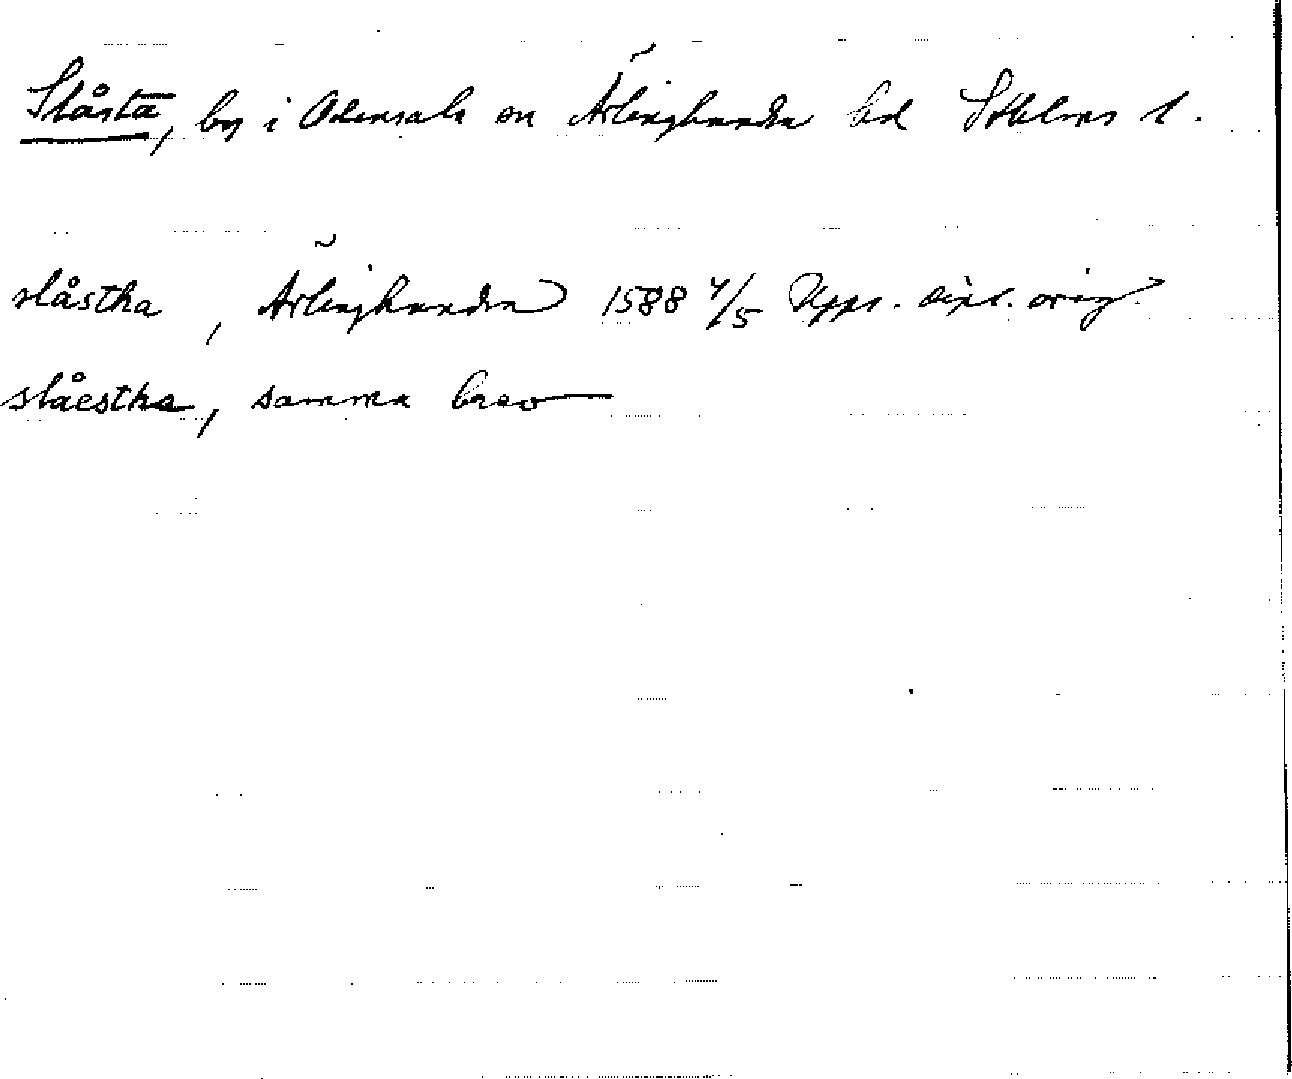 Slåsta, by i Odensala sn Ärlinghundra hd Sthlms l.
slåstha, Ärlinghundra 1588 4/5 Upps. dipl. orig.
slåestha, samma brev